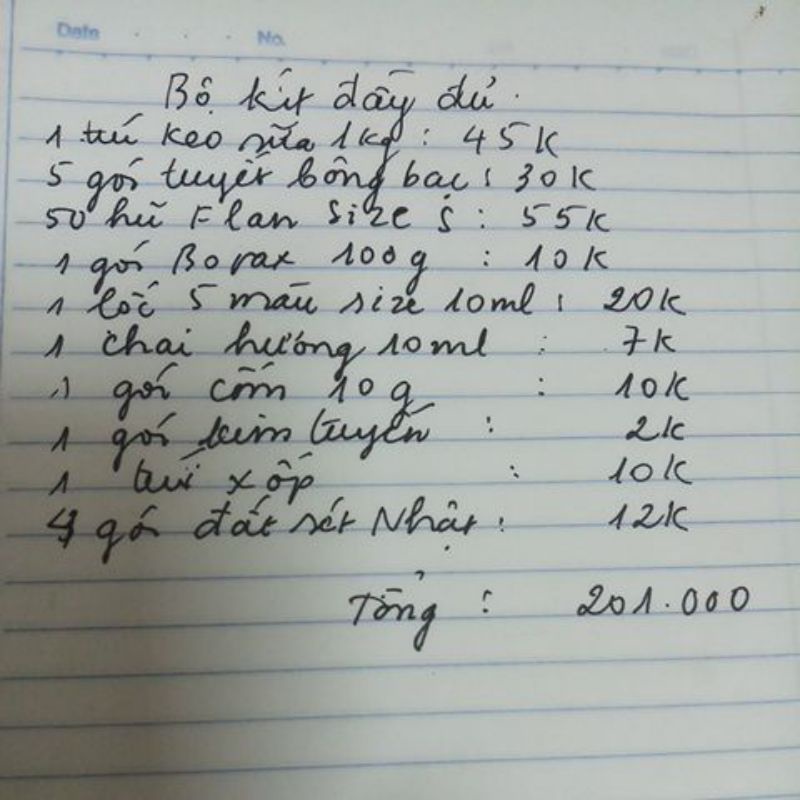 Date . . . No.
Bộ kít đầy đủ.
1 túi keo sữa 1kg : 45K
5 gói tuyết bông bạc : 30K
50 hũ Flan Size S : 55K
1 gói Borax 100g : 10K
1 lốc 5 màu size 10ml : 20K
1 chai hương 10ml : 7K
1 gói cốm 10g : 10K
1 gói kim tuyến : 2K
1 túi xốp : 10K
4 gói đất sét Nhật : 12K
Tổng : 201.000